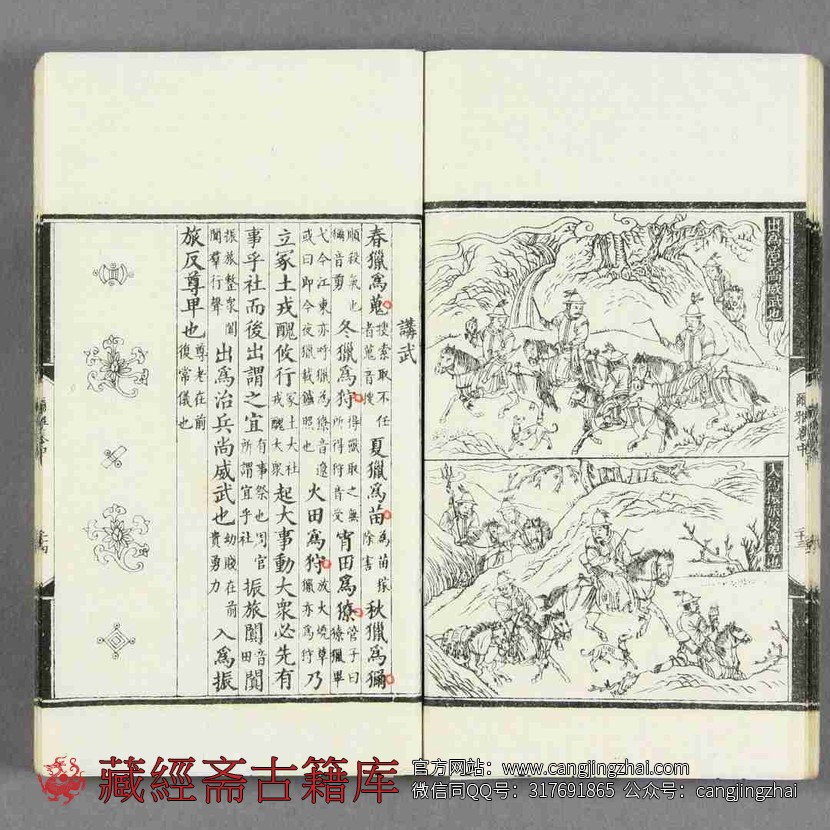 出爲治兵尚威武也
入爲振旅反尊卑也
爾雅卷中
二十三
講武
春獵爲蒐搜索取不任者蒐音搜夏獵爲苗爲苗稼除害秋獵爲獮
順殺氣也獮音剪冬獵爲狩得獸取之無所擇狩音受宵田爲獠管子曰獠獵畢
弋今江東亦呼獵爲獠音遼或曰即今夜獵載鑪照也火田爲狩放火燒草獵亦爲狩乃
立冢土戎醜攸行冢土大社戎醜大衆起大事動大衆必先有
事乎社而後出謂之宜有事祭也周官所謂宜乎社振旅闐音田闐
振旅整衆闐闐羣行聲出爲治兵尚威武也幼賤在前貴勇力入爲振
旅反尊卑也尊老在前復常儀也
藏經斋古籍库
官方网站：www.cangjingzhai.com
微信同QQ号：317691865 公众号：cangjingzhai